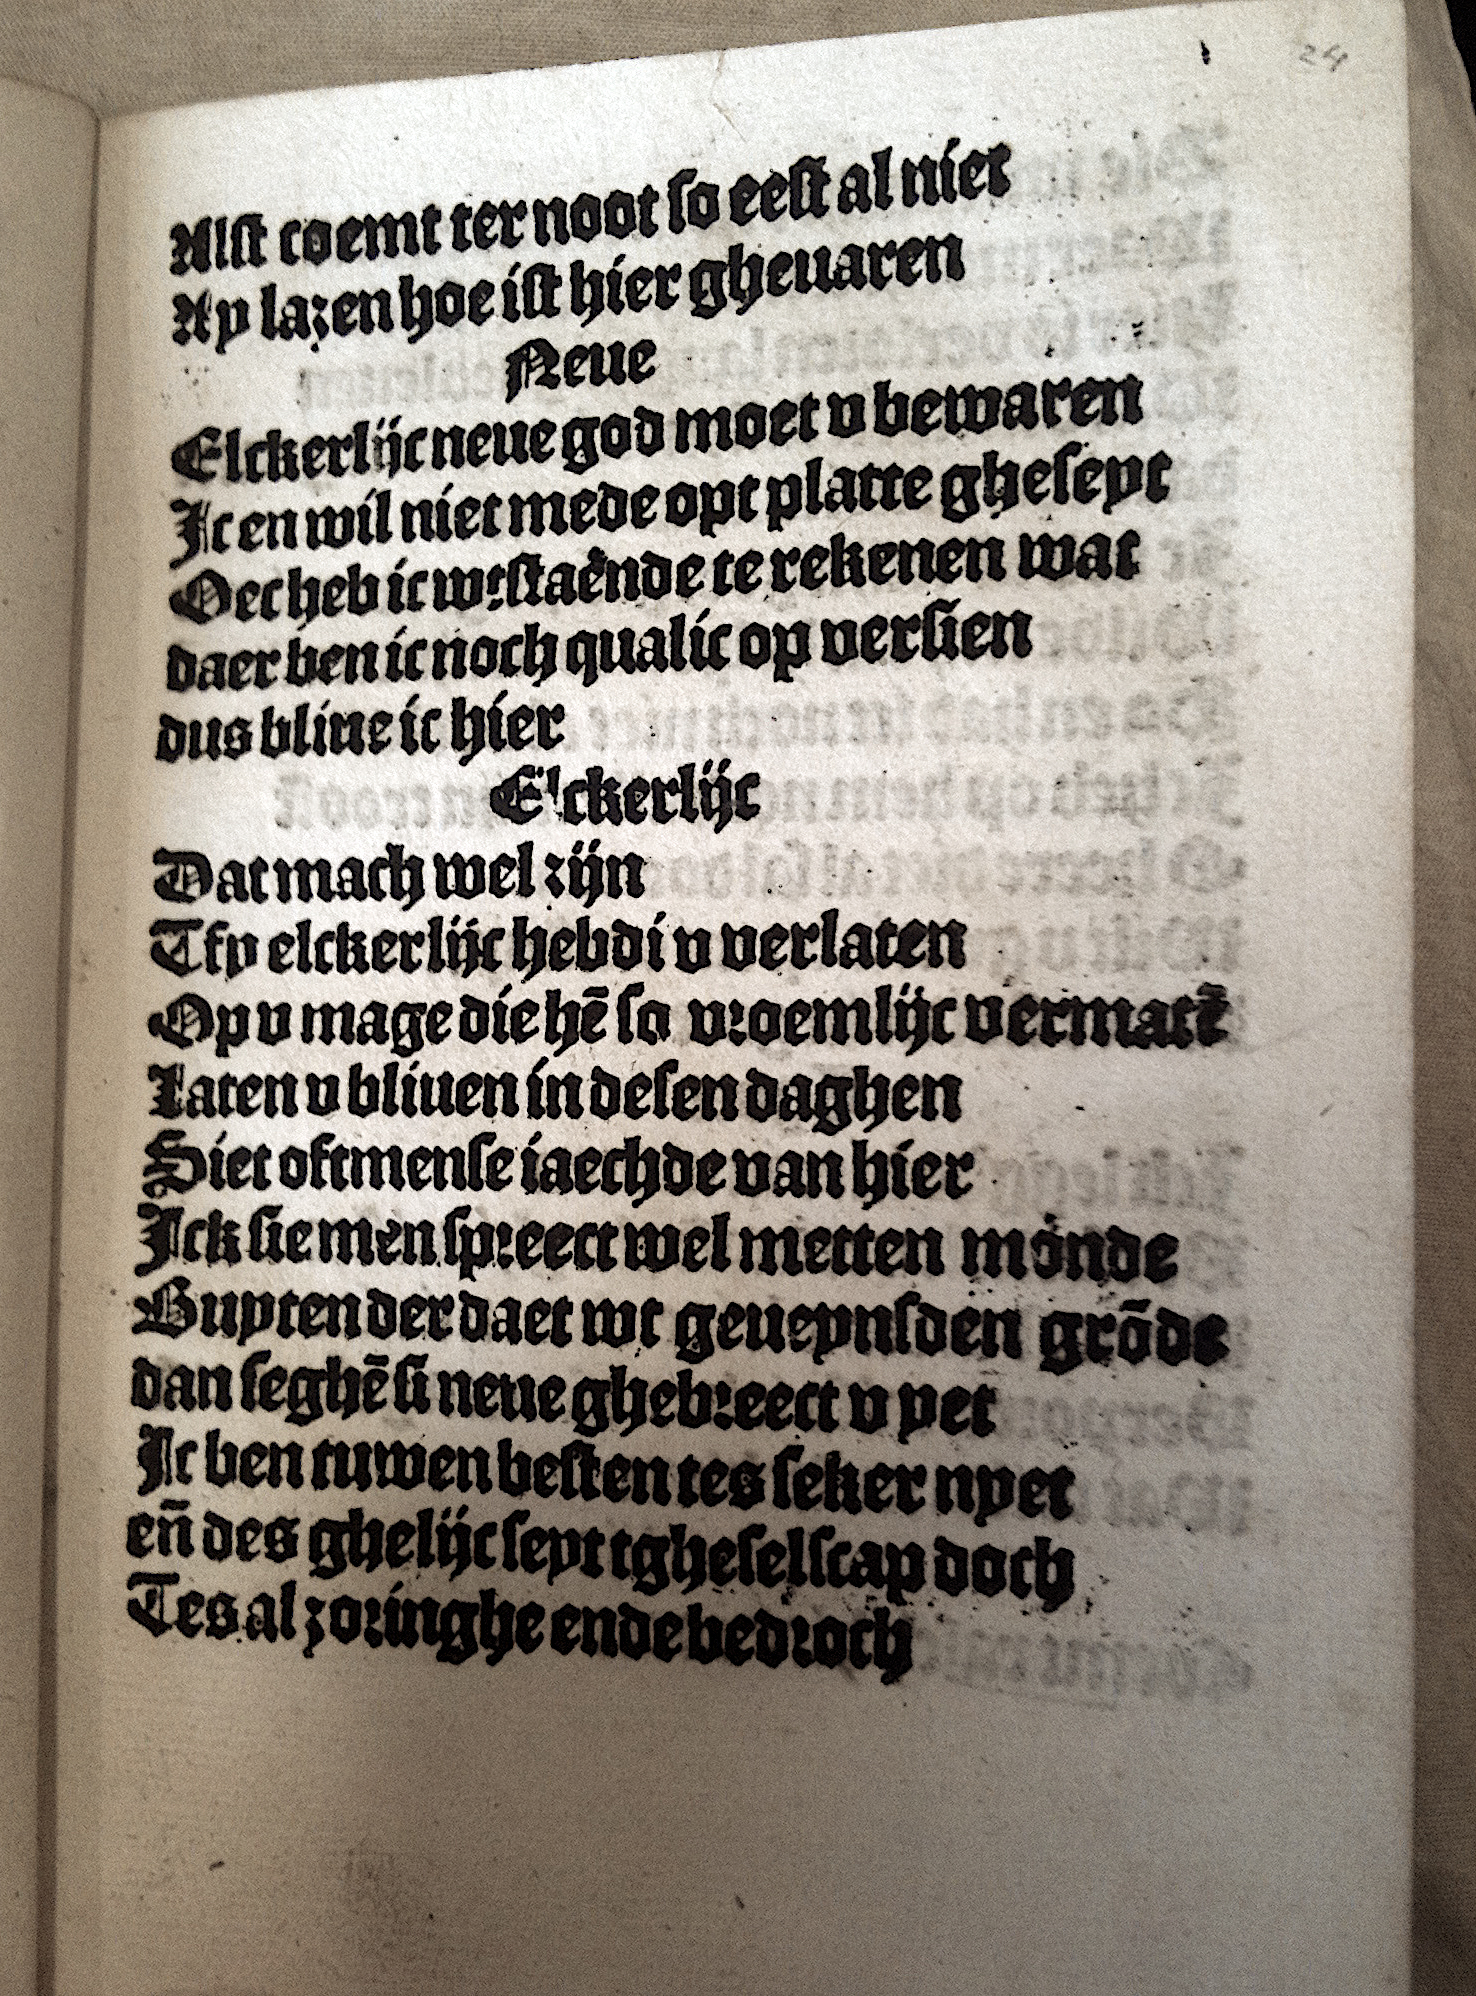 24
Alſt coemt ter noot ſo eeſt al niet
Ay lazen hoe iſt hier gheuaren
Neue
Elckerlijc neue god moet v bewaren
Ic en wil niet mede opt platte gheſeyt
Oec heb ic wtſtaēnde te rekenen wat
daer ben ic noch qualic op verſien
dus bliue ic hier
Elckerlijc
Dat mach wel zijn
Tfy elckerlijc hebdi v verlaten
Op v mage die hē ſo vꝛoemlijc vermatē
Laten v bliuen in deſen daghen
Siet oftmenſe iaechde van hier
Ick ſie men ſpꝛeect wel metten monde
Buyten der daet wt geueynſden grōde
dan ſeghē ſi neue ghebꝛeect v yet
Ic ben tuwen beſten tes ſeker nyet
en̄ des ghelijc ſeyt tgheſelſcap doch
Tes al zoꝛinghe ende bedꝛoch